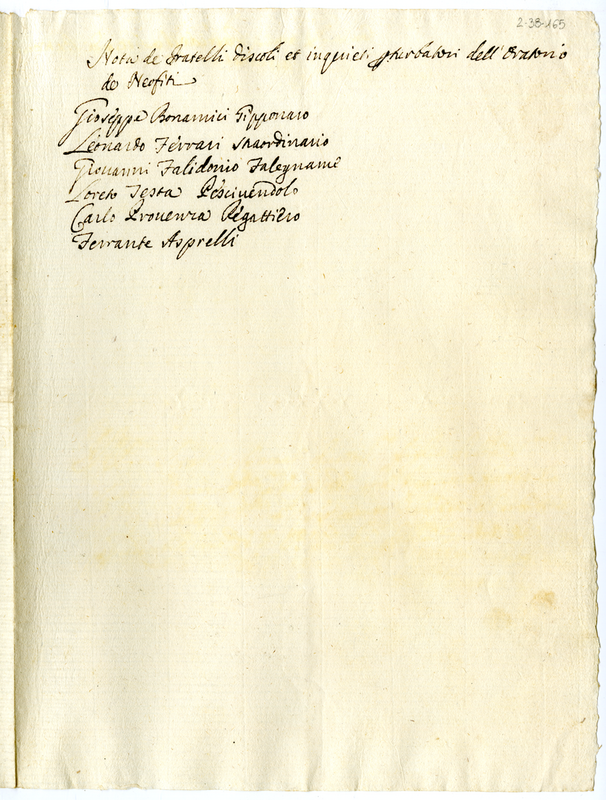 2-38-165
Nota de Fratelli discoli et inquieti pturbatori dell'Oratorio
de Neofiti
Gioseppe Bonamici Gipponaro
Leonardo Ferrari straordinario
Giovanni Falidonio Falegname
Loreto Testa Pescivendolo
Carlo Provenza Regattiero
Ferrante Asprelli